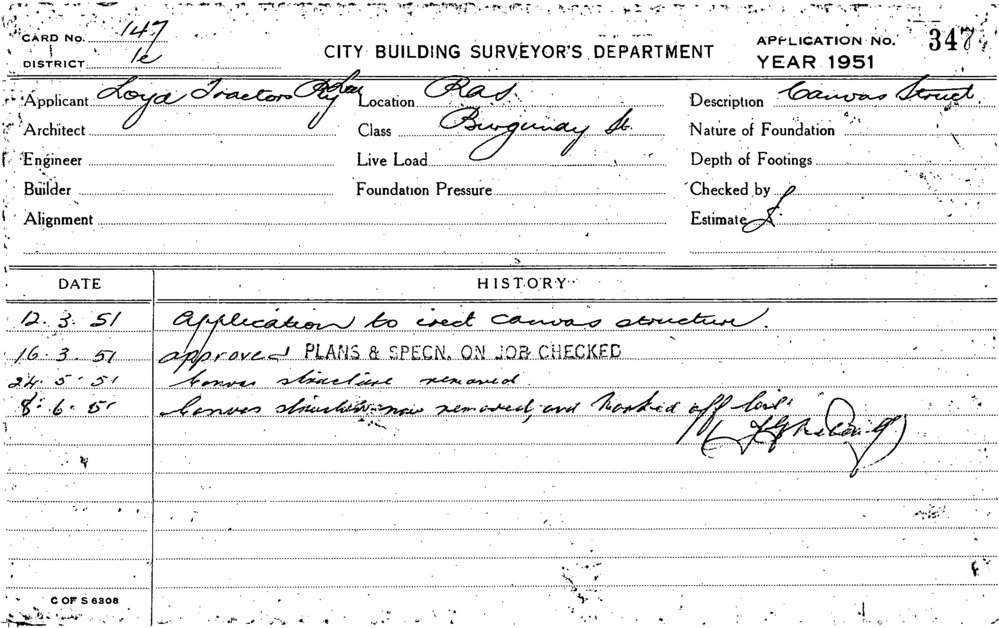 CARD No. 147
DISTRICT 1e
CITY BUILDING SURVEYOR'S DEPARTMENT
APPLICATION No. 347
YEAR 1951
Applicant Loyd Tractors Pty Ltd Location R.A.S. Description Canvas Struct.
Architect Class Burgunday St. Nature of Foundation
Engineer Live Load Depth of Footings
Builder Foundation Pressure Checked by
Alignment Estimate £
DATE HISTORY
12.3.51 Application to erect canvas structure.
16.3.51 approved PLANS & SPECN. ON JOB CHECKED
24.5.51 Canvas structure removed
8.6.51 Canvas structure now removed, and marked off
C OF S 6308